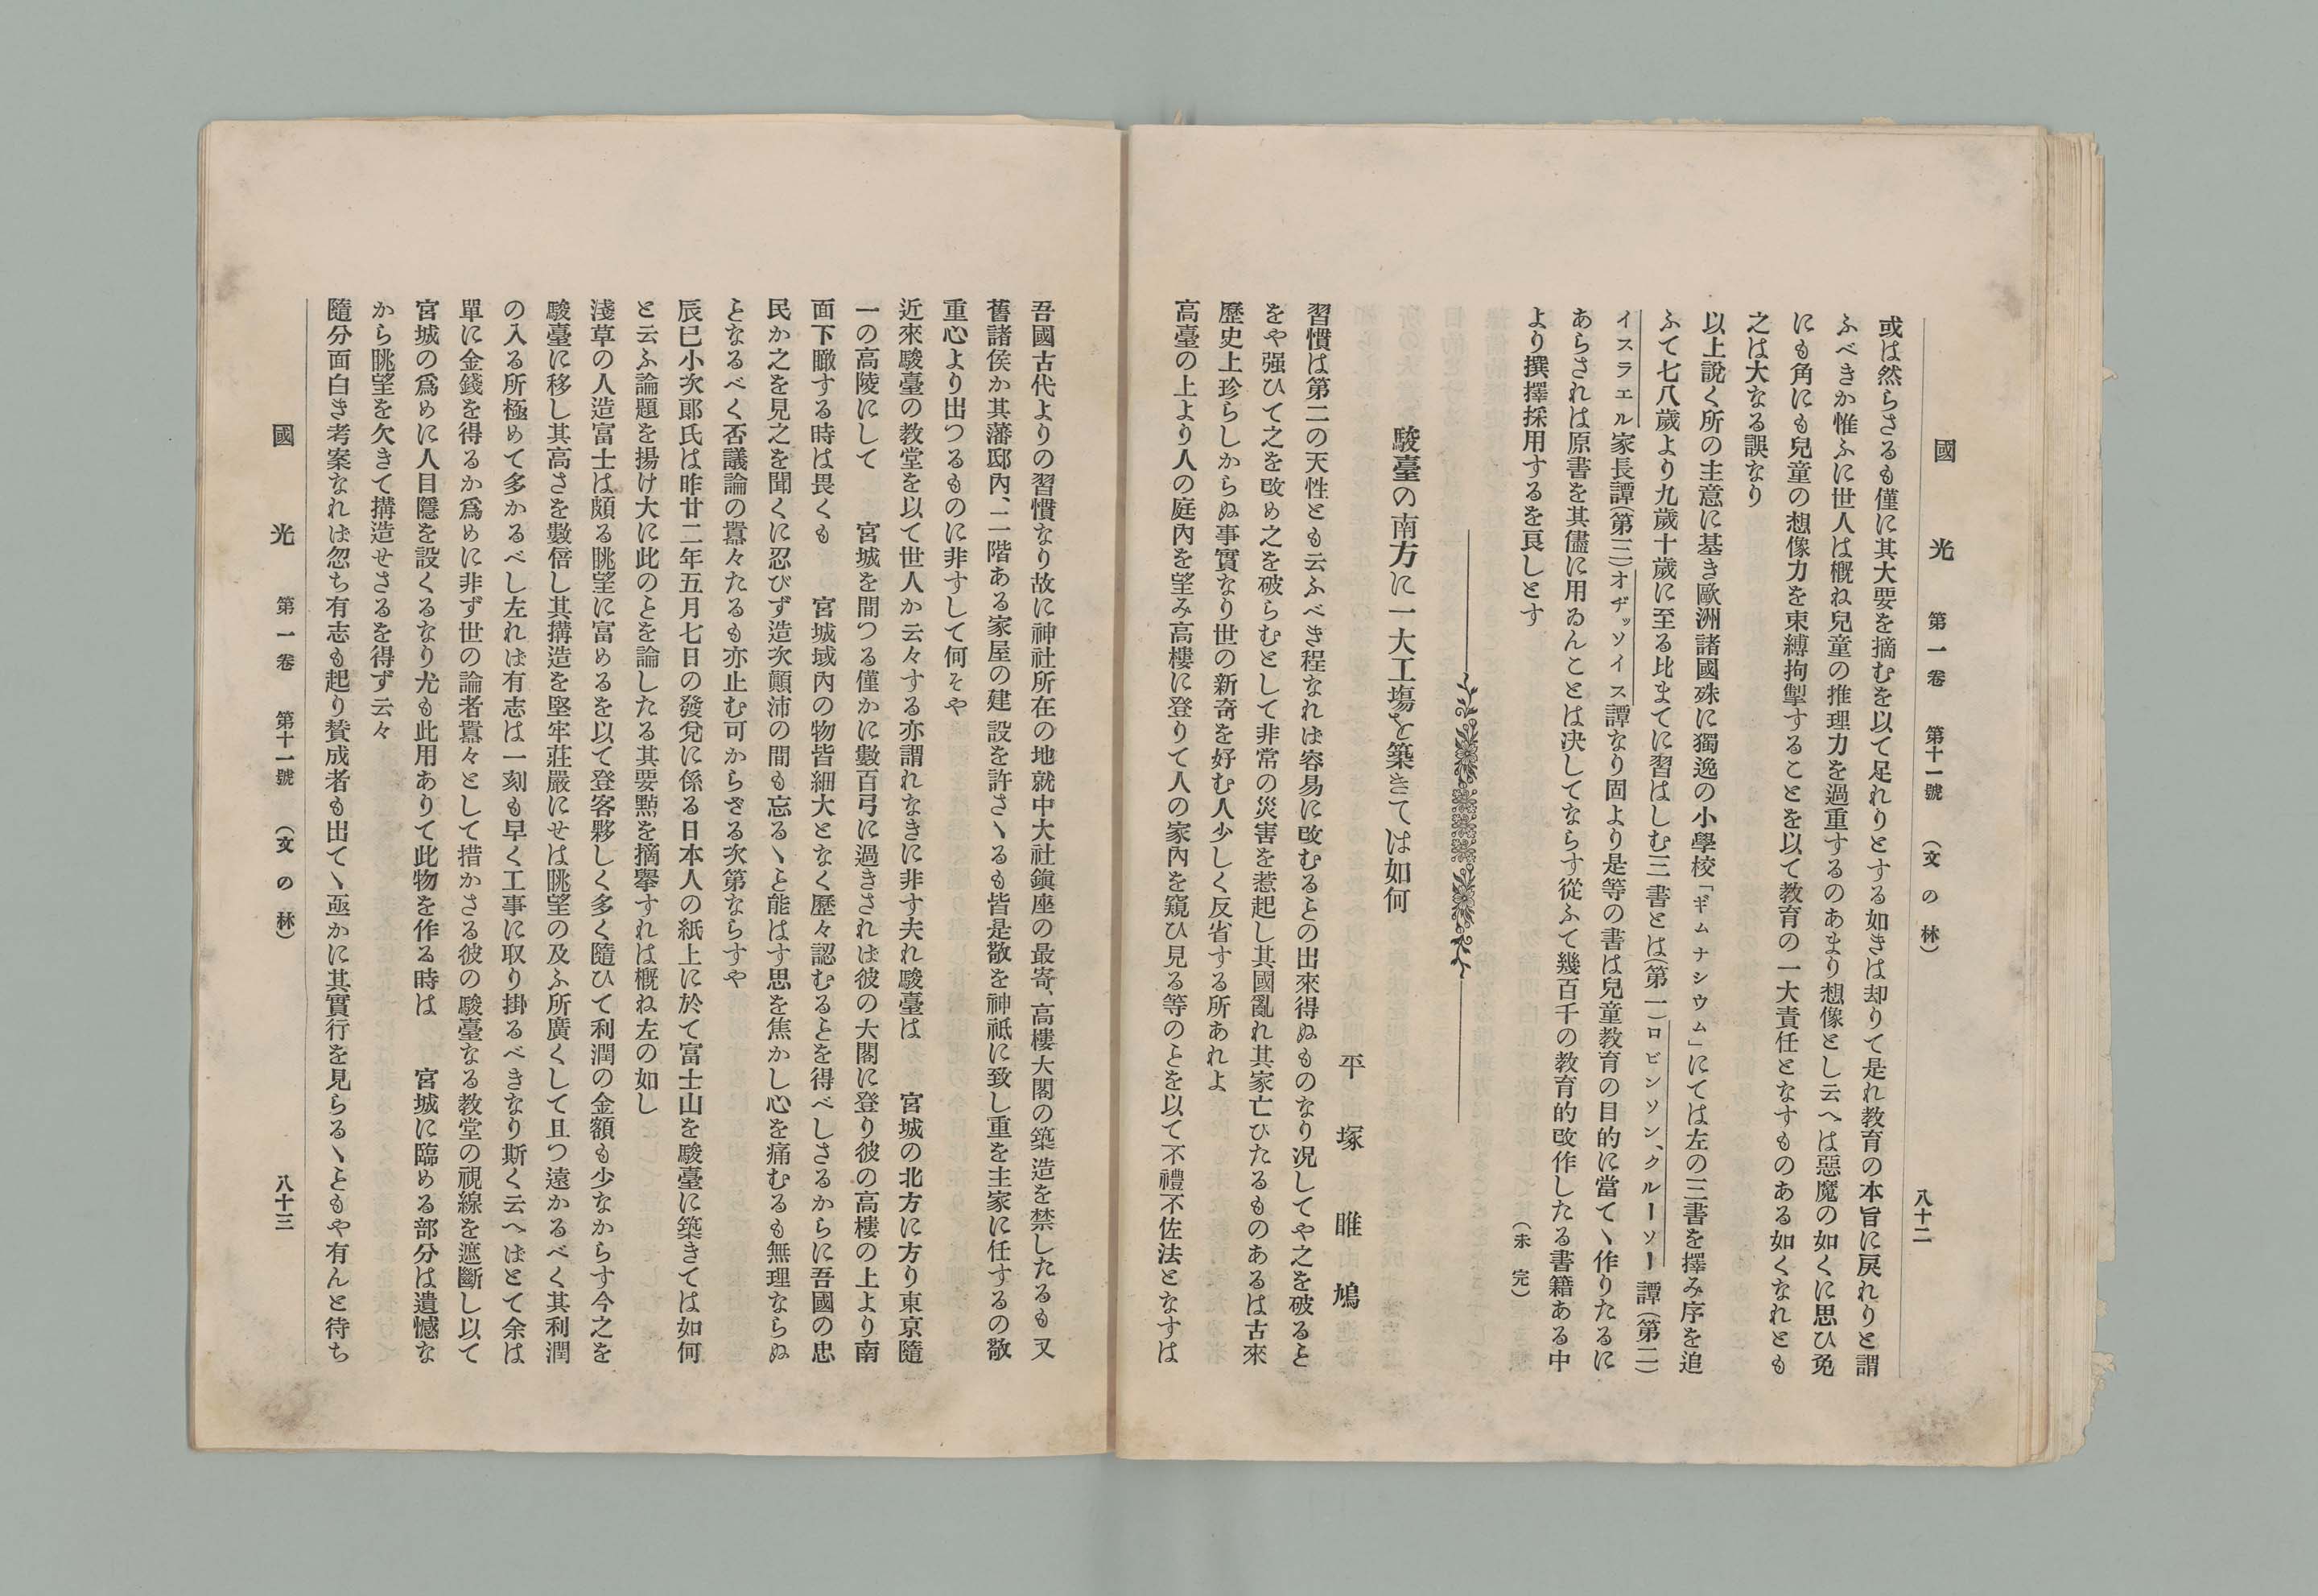 國光 第一卷 第十一號 (文の林) 八十二
或は然らさるも僅に其大要を摘むを以て足れりとする如きは却りて是れ教育の本旨に戻れりと謂
ふべきか惟ふに世人は概ね兒童の推理力を過重するのあまり想像とし云へは惡魔の如くに思ひ兎
にも角にも兒童の想像力を束縛拘掣することを以て教育の一大責任となすものある如くなれとも
之は大なる誤なり
以上說く所の主意に基き歐洲諸國殊に獨逸の小學校「ギムナシウム」にては左の三書を擇み序を追
ふて七八歲より九歲十歲に至る比まてに習はしむ三書とは(第一)ロビンソン、クルーソー譚(第二)
イスラエル家長譚(第三)オヂッソイス譚なり固より是等の書は兒童教育の目的に當てヽ作りたるに
あらされは原書を其儘に用ゐんことは决してならす從ふて幾百千の教育的改作したる書籍ある中
より撰擇採用するを良しとす
(未完)
駿臺の南方に一大工塲を築きては如何
平塚睢鳩
習慣は第二の天性とも云ふべき程なれは容易に改むるとの出來得ぬものなり况してや之を破ると
をや强ひて之を改め之を破らむとして非常の災害を惹起し其國亂れ其家亡ひたるものあるは古來
歷史上珍らしからぬ事實なり世の新奇を好む人少しく反省する所あれよ
高臺の上より人の庭內を望み高樓に登りて人の家內を窺ひ見る等のとを以て不禮不佐法となすは
吾國古代よりの習慣なり故に神社所在の地就中大社鎭座の最寄、高樓大閣の築造を禁したるも又
舊諸侯か其藩邸內、二階ある家屋の建設を許さヽるも皆是敬を神祇に致し重を主家に任するの敬
重心より出つるものに非すして何そや
近來駿臺の教堂を以て世人か云々する亦謂れなきに非す夫れ駿臺は 宮城の北方に方り東京隨
一の高陵にして 宮城を間つる僅かに數百弓に過きされは彼の大閣に登り彼の高樓の上より南
面下瞰する時は畏くも 宮城域內の物皆細大となく歷々認むるとを得べしさるからに吾國の忠
民か之を見之を聞くに忍びず造次顚沛の間も忘るヽと能はす思を焦かし心を痛むるも無理ならぬ
となるべく否議論の囂々たるも亦止む可からざる次第ならすや
辰巳小次郞氏は昨廿二年五月七日の發兌に係る日本人の紙上に於て富士山を駿臺に築きては如何
と云ふ論題を揭け大に此のとを論したる其要㸃を摘擧すれは概ね左の如し
淺草の人造富士は頗る眺望に富めるを以て登客夥しく多く隨ひて利潤の金額も少なからす今之を
駿臺に移し其高さを數倍し其搆造を堅牢莊嚴にせは眺望の及ふ所廣くして且つ遠かるべく其利潤
の入る所極めて多かるべし左れは有志は一刻も早く工事に取り掛るべきなり斯く云へはとて余は
單に金錢を得るか爲めに非ず世の論者囂々として措かさる彼の駿臺なる教堂の視線を遮斷し以て
宮城の爲めに人目隱を設くるなり尤も此用ありて此物を作る時は 宮城に臨める部分は遺憾な
から眺望を欠きて搆造せさるを得ず云々
隨分面白き考案なれは忽ち有志も起り賛成者も出てヽ亟かに其實行を見らるヽともや有んと待ち
國光 第一卷 第十一號 (文の林) 八十三